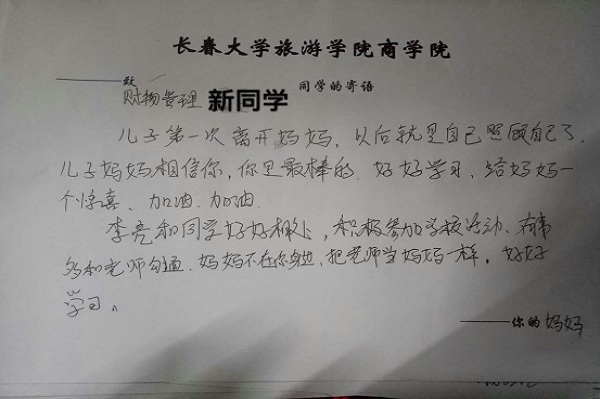 长春大学旅游学院商学院
——致
财物管理 新同学 同学的寄语
儿子第一次离开妈妈，以后就是自己照顾自己了，
儿子妈妈相信你，你是最棒的，好好学习，给妈妈一
个惊喜、加油.加油.
李亮和同学好好相处，积极参加学校活动、有事
多和老师勾通、妈妈不在你身边、把老师当妈妈一样。好好
学习。
——你的妈妈